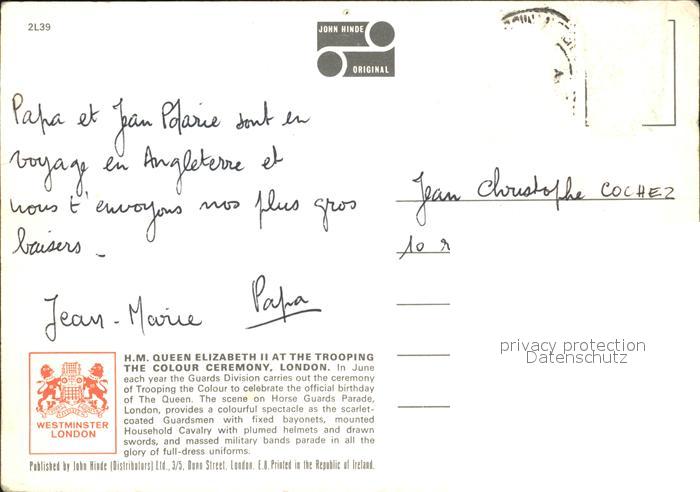 2L39
JOHN HINDE
ORIGINAL
Papa et Jean Marie sont en
voyage en Angleterre et
nous t'envoyons nos plus gros
baisers.
Jean-Marie Papa
Jean Christophe COCHEZ
10 r
privacy protection
Datenschutz
WESTMINSTER
LONDON
H.M. QUEEN ELIZABETH II AT THE TROOPING
THE COLOUR CEREMONY, LONDON. In June
each year the Guards Division carries out the ceremony
of Trooping the Colour to celebrate the official birthday
of The Queen. The scene on Horse Guards Parade,
London, provides a colourful spectacle as the scarlet-
coated Guardsmen with fixed bayonets, mounted
Household Cavalry with plumed helmets and drawn
swords, and massed military bands parade in all the
glory of full-dress uniforms.
Published by John Hinde (Distributors) Ltd., 3/5, Dunn Street, London. E.8. Printed in the Republic of Ireland.